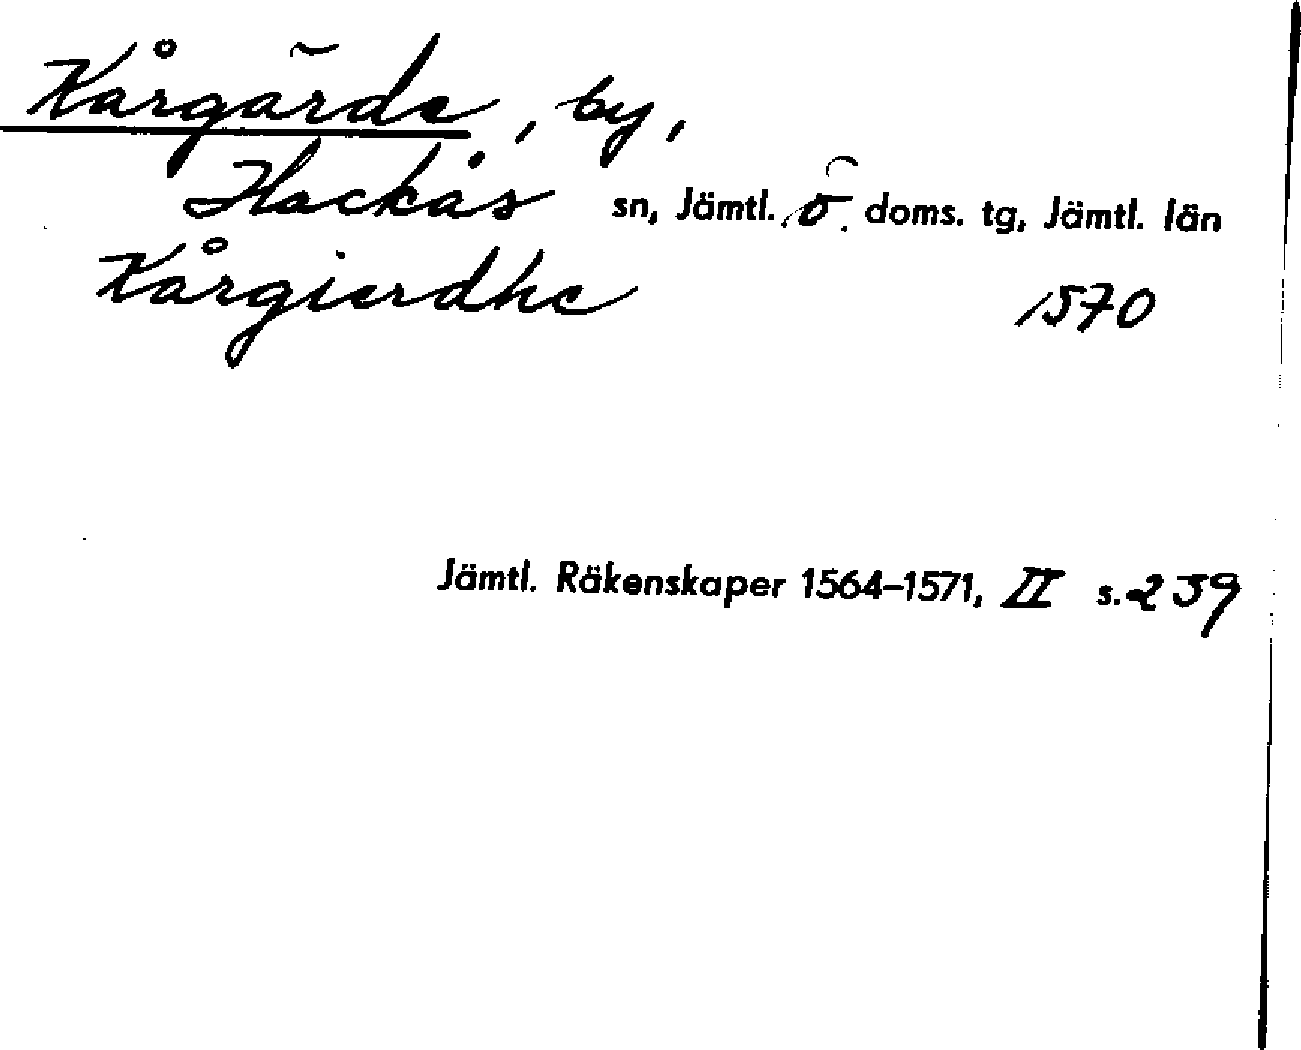 Kårgärde, by,
Hackås sn, Jämtl. ö. doms. tg, Jämtl. län
Kårgierdhe 1570
Jämtl. Räkenskaper 1564–1571, II s. 239